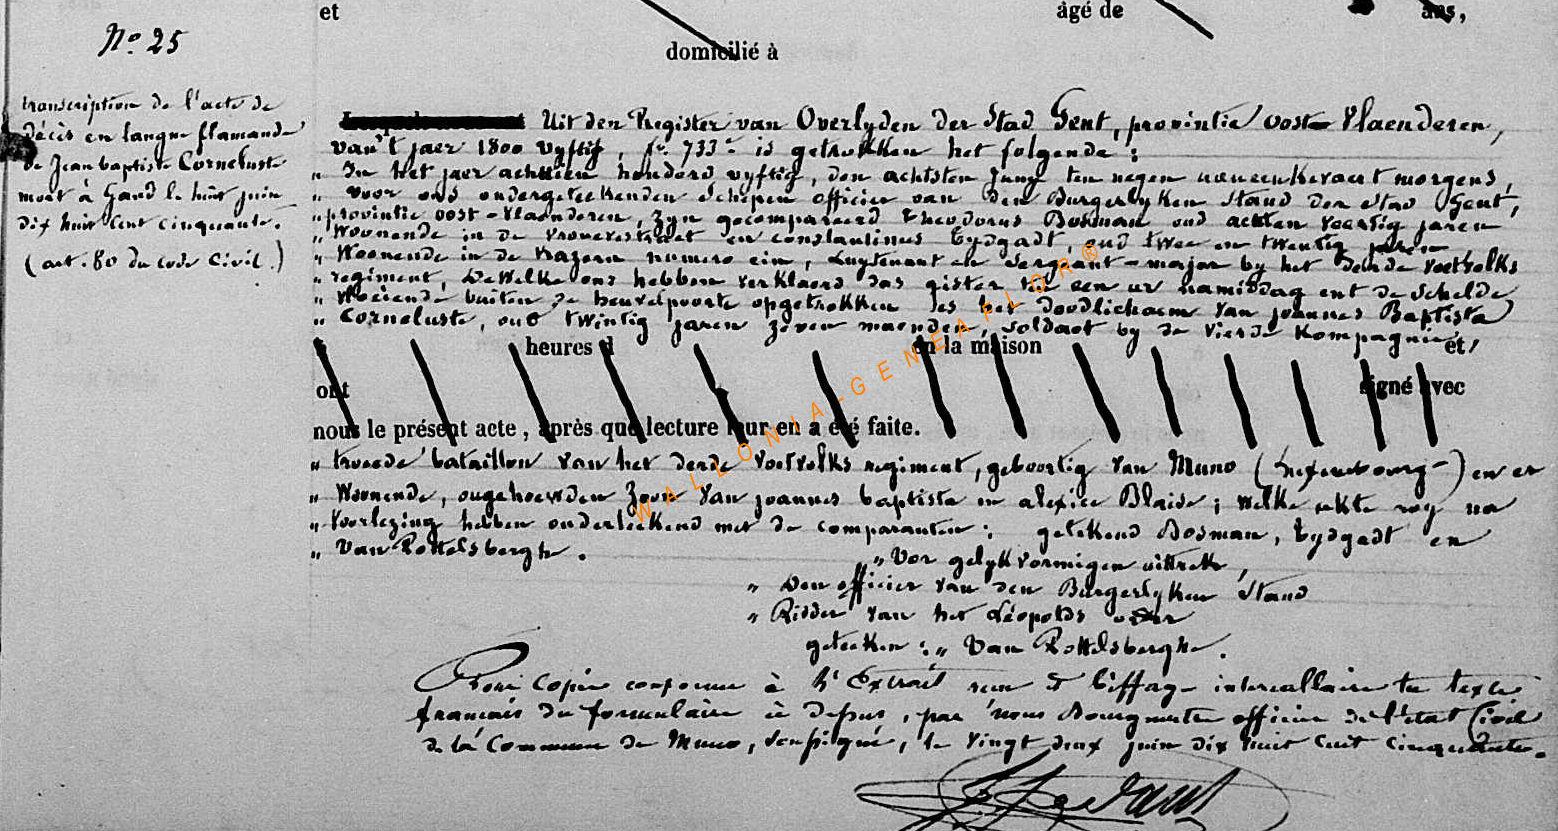 et âgé de ans,
domicilié à
N° 25
transcription de l'acte de
décès en langue flamande
de Jean baptiste Corneluste
mort à Gand le huit juin
dix huit cent cinquante.
(art. 80 du code Civil.)
Uit den Register van Overlyden der Stad Gent, provintie oost Vlaenderen,
van't jaer 1800 vyftig, N° 733 is getrokken het folgende :
„ In het jaer achttien honderd vyftig, den achtsten Juny ten negen uren morgens,
„ voor ons ondergeteekenden Schepen officier van den Burgerlyken Stand der stad Gent,
„ provintie oost-Vlaenderen, zyn gecompareerd theodorus Bosman oud achten veertig jaren
„ Woonende in de en constantinus Eydgadt, oud twee en twentig jaren
„ Woonende in de Kazern numero ein, Luytenant en Sergeant-major by het derde voetvolks
„ regiment, deWelke ons hebben verklaerd das gister ten een ur namiddag ent de Schelde
„ buiten de heuvelpoorte opgetrokken is het doodlichaem van joannes Baptista
„ Corneluste, oud twintig jaren zeven maenden, soldaet by de vierde Kompagnie
heures d en la maison et
ont signé avec
nous le présent acte, après que lecture leur en a été faite.
„ tweede bataillon van het derde voetvolks regiment, geboortig van Muno (Luxembourg) en er
„ Woonende, ongehuewden zoon van joannes baptista en alexise Blaise ; welke akte wy na
„ Voorlezing hebben onderteekend met de comparanten : getekend Bosman, Eydgadt en
„ Van Pottelsberghe.
„ Vor gelykvormigen uittrek,
„ Den officier van den Burgerlyken Stand
„ Ridder van het Léopolds order
geteeken : „ Van Pottelsberghe.
Pour Copie conforme à l'Extrait et Biffage intercallaire du texte
français du formulaire ci dessus, par nous Bourgmestre officier de l'état Civil
de la Commune de Muno, soussigné, le vingt deux juin dix huit cent cinquante.
WALLONIA-GENEAFLOR®